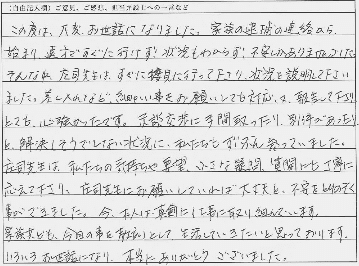 (自由記入欄)ご意見、ご感想、担当弁護士への一言など
この度は、大変お世話になりました。家族の逮捕の連絡から
始まり、遠方ですぐに行けず、状況もわからず、不安しかありませんでした。
そんな中、庄司先生は、すぐに接見に行って下さり、状況を説明して下さい
ました。差し入れなど、細かい事をお願いしても対応し、報告して下さり
とても、心強かったです。示談交渉に手間取ったり、別件があったり
と、解決しそうでしない状況に、私たちもずいぶん参っていました。
庄司先生は、私たちの気持ちや要望、小さな疑問、質問にも丁寧に
応えて下さり、庄司先生にお願いしていれば大丈夫と、不安を
事ができました。今、本人は真剣に仕事に取り組んでいます。
家族ともども、今回の事を教訓として、生活していきたいと思っております。
いろいろお世話になり、本当にありがとうございました。